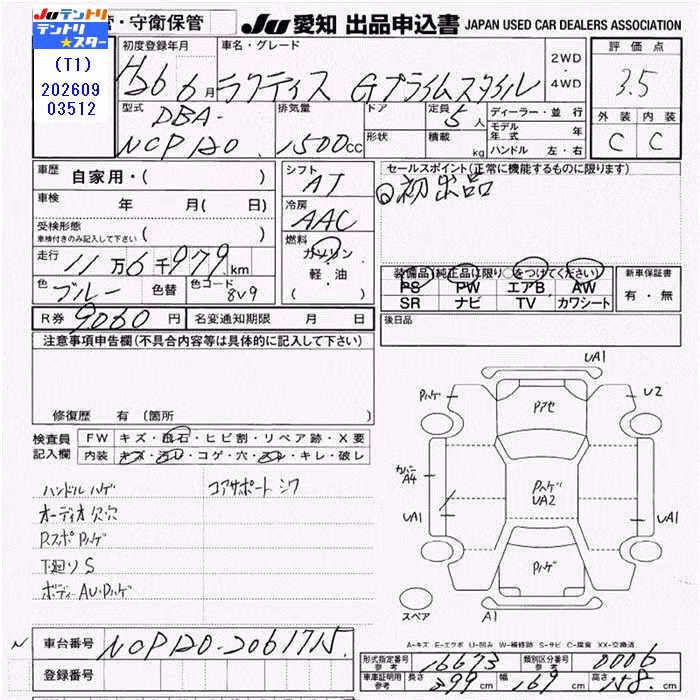 Ju テントリ
テントリ★スター
(T1)
202609
03512
・守衛保管
Ju 愛知 出品申込書 JAPAN USED CAR DEALERS ASSOCIATION
初度登録年月 車名・グレード 2WD・4WD 評価点
H26 6月 ラクティス Gプライムスタイル 3.5
型式 排気量 ドア 定員 5人 ディーラー・並行 外装 内装
DBA-
NCP120 1500cc 形状 積載 kg モデル年式 年 C C
ハンドル 左・右
車歴 自家用・( ) シフト AT セールスポイント(正常に機能するものに限ります)
初出品
車検 年 月( 日) 冷房 AAC
受検形態
車検付きのみ記入して下さい ( ) 燃料 ガソリン
走行 11万6千979km 軽・油
( )
装備品(純正品に限り○をつけてください) 新車保証書
PS PW エアB AW 有・無
SR ナビ TV カワシート
色 ブルー 色替 色コード 8V9
R券 9060円 名変通知期限 月 日 後日品
注意事項申告欄(不具合内容等は具体的に記入して下さい)
修復歴 有(箇所
検査員記入欄 FW キズ・飛石・ヒビ割・リペア跡・X要
内装 キズ・汚レ・コゲ・穴・スレ・キレ・破レ
ハンドルハゲ コアサポートシワ
オーディオ欠穴
Rスポ Pハゲ
下廻りS
ボディーAU・Pハゲ
UA1
Pハゲ Pアセ U2
カバー A4 Pハゲ UA2
UA1 UA1
Pハゲ
スペア A1
A-キズ E-エクボ U-凹み W-補修跡 S-サビ C-腐食 XX-交換済
N 車台番号 NCP120-2061715
登録番号
形式指定番号 参考 16673 類別区分番号 参考 0006
車庫証明用 参考 長さ 399cm 幅 169cm 高さ 158cm